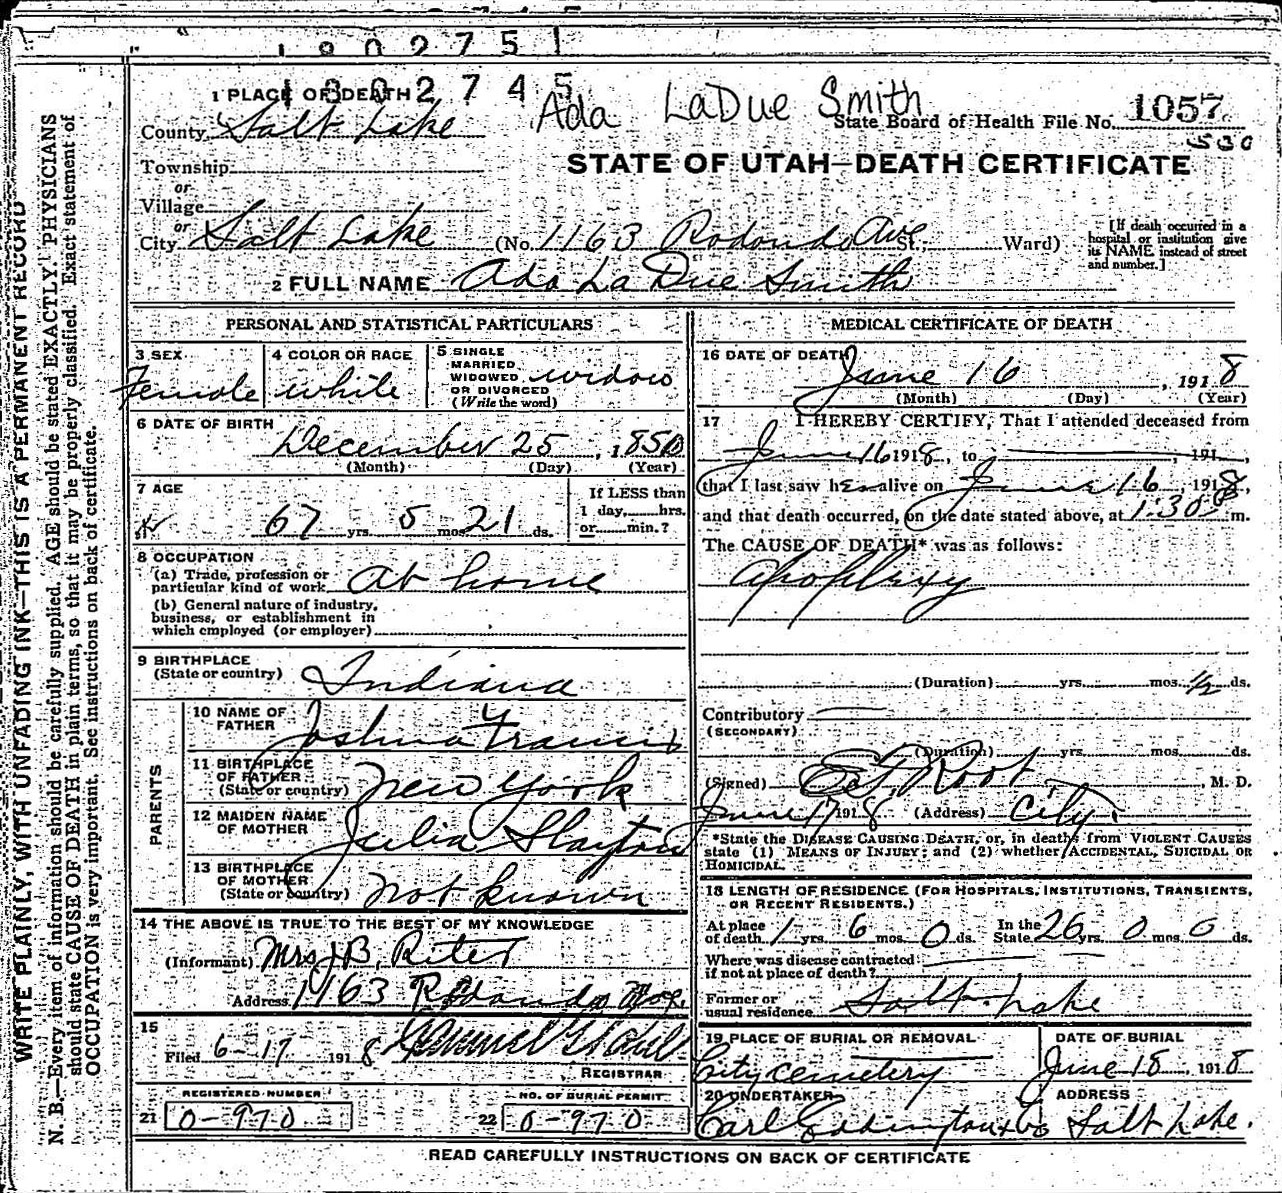 1 8 0 2 7 5 1
1 3 0 2 7 4 5
1 PLACE OF DEATH
Ada LaDue Smith
County Salt Lake
State Board of Health File No. 1057
530
Township
STATE OF UTAH—DEATH CERTIFICATE
or
Village
or
City Salt Lake (No. 1163 Redondo Ave St.; Ward)
[If death occurred in a hospital or institution give its NAME instead of street and number.]
2 FULL NAME Ada La Due Smith
PERSONAL AND STATISTICAL PARTICULARS
3 SEX Female
4 COLOR OR RACE white
5 SINGLE MARRIED WIDOWED OR DIVORCED (Write the word) widow
6 DATE OF BIRTH December 25, 1850
(Month) (Day) (Year)
7 AGE 67 yrs. 5 mos. 21 ds.
If LESS than 1 day,......hrs. or......min.?
8 OCCUPATION
(a) Trade, profession or particular kind of work at home
(b) General nature of industry, business, or establishment in which employed (or employer)
9 BIRTHPLACE (State or country) Indiana
PARENTS
10 NAME OF FATHER Joshua Travis
11 BIRTHPLACE OF FATHER (State or country) New York
12 MAIDEN NAME OF MOTHER Julia Slayton
13 BIRTHPLACE OF MOTHER (State or country) not known
14 THE ABOVE IS TRUE TO THE BEST OF MY KNOWLEDGE
(Informant) Mrs J B, Riter
Address 1163 Redondo Ave.
15
Filed 6-17 1918
REGISTRAR
REGISTERED NUMBER
21 0-970
NO. OF BURIAL PERMIT
22 0-970
MEDICAL CERTIFICATE OF DEATH
16 DATE OF DEATH
June 16, 1918
(Month) (Day) (Year)
17 I HEREBY CERTIFY, That I attended deceased from
June 16 1918, to , 191 ,
that I last saw her alive on June 16 1918,
and that death occurred, on the date stated above, at 1:30 P m.
The CAUSE OF DEATH* was as follows:
apoplexy
(Duration) yrs. mos. 1/2 ds.
Contributory
(SECONDARY)
(Duration) yrs. mos. ds.
(Signed) Root, M. D.
June 17 1918 (Address) City.
*State the DISEASE CAUSING DEATH, or, in deaths from VIOLENT CAUSES
state (1) MEANS OF INJURY; and (2) whether ACCIDENTAL, SUICIDAL OR
HOMICIDAL.
18 LENGTH OF RESIDENCE (FOR HOSPITALS, INSTITUTIONS, TRANSIENTS,
OR RECENT RESIDENTS.)
At place of death 1 yrs. 6 mos. 0 ds. In the State 26 yrs. 0 mos. 0 ds.
Where was disease contracted
if not at place of death?
Former or usual residence Salt Lake
19 PLACE OF BURIAL OR REMOVAL City cemetery
DATE OF BURIAL June 18, 1918
20 UNDERTAKER
ADDRESS Salt Lake.
READ CAREFULLY INSTRUCTIONS ON BACK OF CERTIFICATE
WRITE PLAINLY, WITH UNFADING INK—THIS IS A PERMANENT RECORD
N. B.—Every item of information should be carefully supplied. AGE should be stated EXACTLY. PHYSICIANS
should state CAUSE OF DEATH in plain terms, so that it may be properly classified. Exact statement of
OCCUPATION is very important. See instructions on back of certificate.